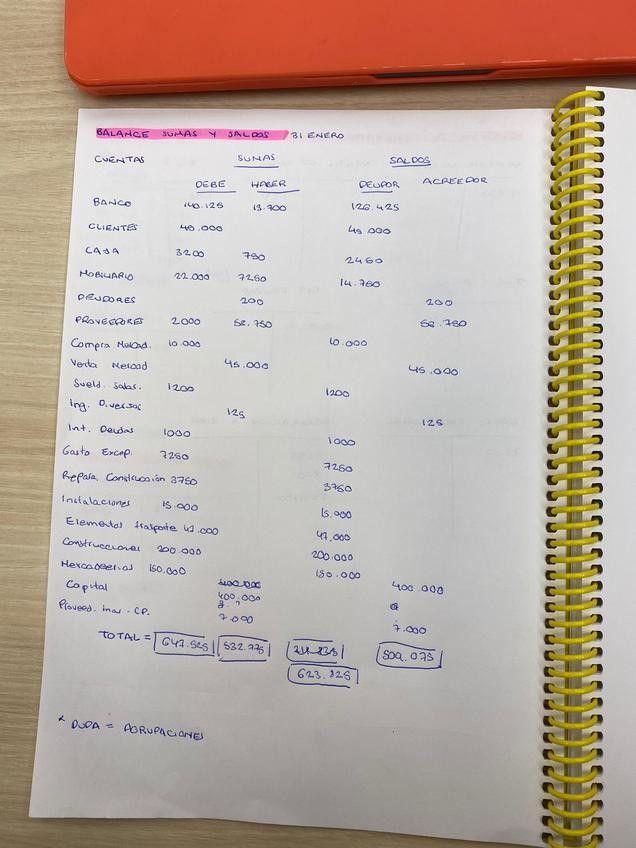 BALANCE SUMAS Y SALDOS 31 ENERO
CUENTAS SUMAS SALDOS
DEBE HABER DEUDOR ACREEDOR
BANCO 140.125 13.700 126.425
CLIENTES 45.000 45.000
CAJA 3200 750 2450
MOBILIARIO 22.000 7250 14.750
DEUDORES 200 200
PROVEEDORES 2000 58.750 56.750
Compra Mercad. 10.000 10.000
Venta Mercad 45.000 45.000
Sueld. Salar. 1200 1200
Ing. Diversos 125 125
Int. Deudas 1000 1000
Gasto Excep. 7250 7250
Repara. Construcción 3750 3750
Instalaciones 15.000 15.000
Elementos trasporte 47.000 47.000
Construcciones 200.000 200.000
Mercaderias 150.000 150.000
Capital 400.000 400.000
Proveed. Inmo. CP. 7.000 7.000
TOTAL = 647.525 532.775 509.075
623.825
* DUDA = AGRUPACIONES